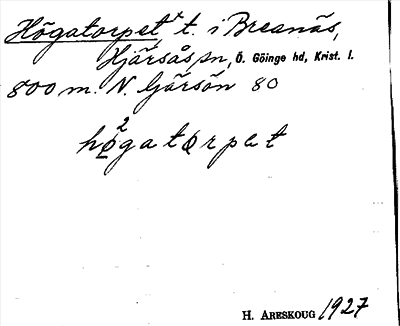 Högatorpet x t. i Breanäs,
Hjärsås sn, Ö. Göinge hd, Krist. l.
800 m. N. Gärsön 80
hø²gatørpet
H. Areskoug 1927